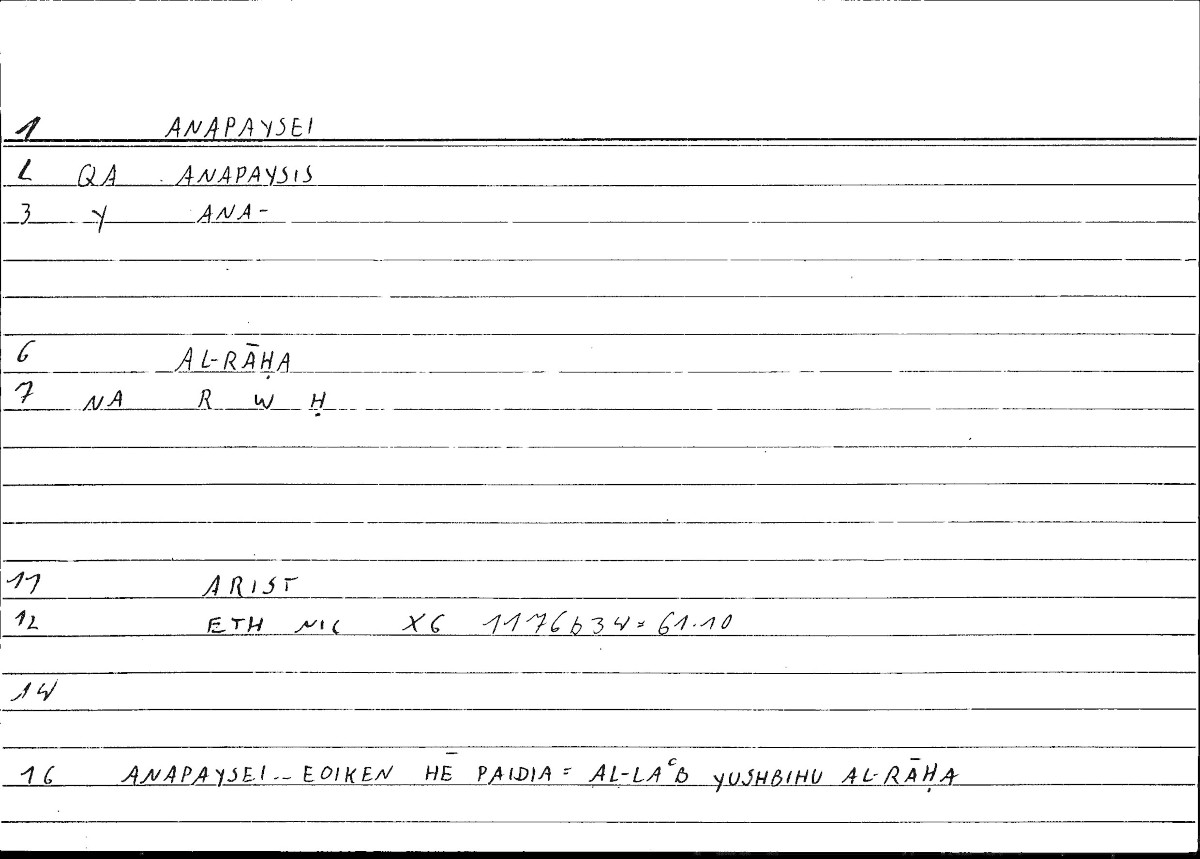 1 ANAPAYSEI
2 QA ANAPAYSIS
3 Y ANA-
6 AL-RĀḤA
7 NA R W Ḥ
11 ARIST
12 ETH NIC X6 1176b34=61.10
14
16 ANAPAYSEI.. EOIKEN HĒ PAIDIA = AL-LAᶜB YUSHBIHU AL-RĀḤA